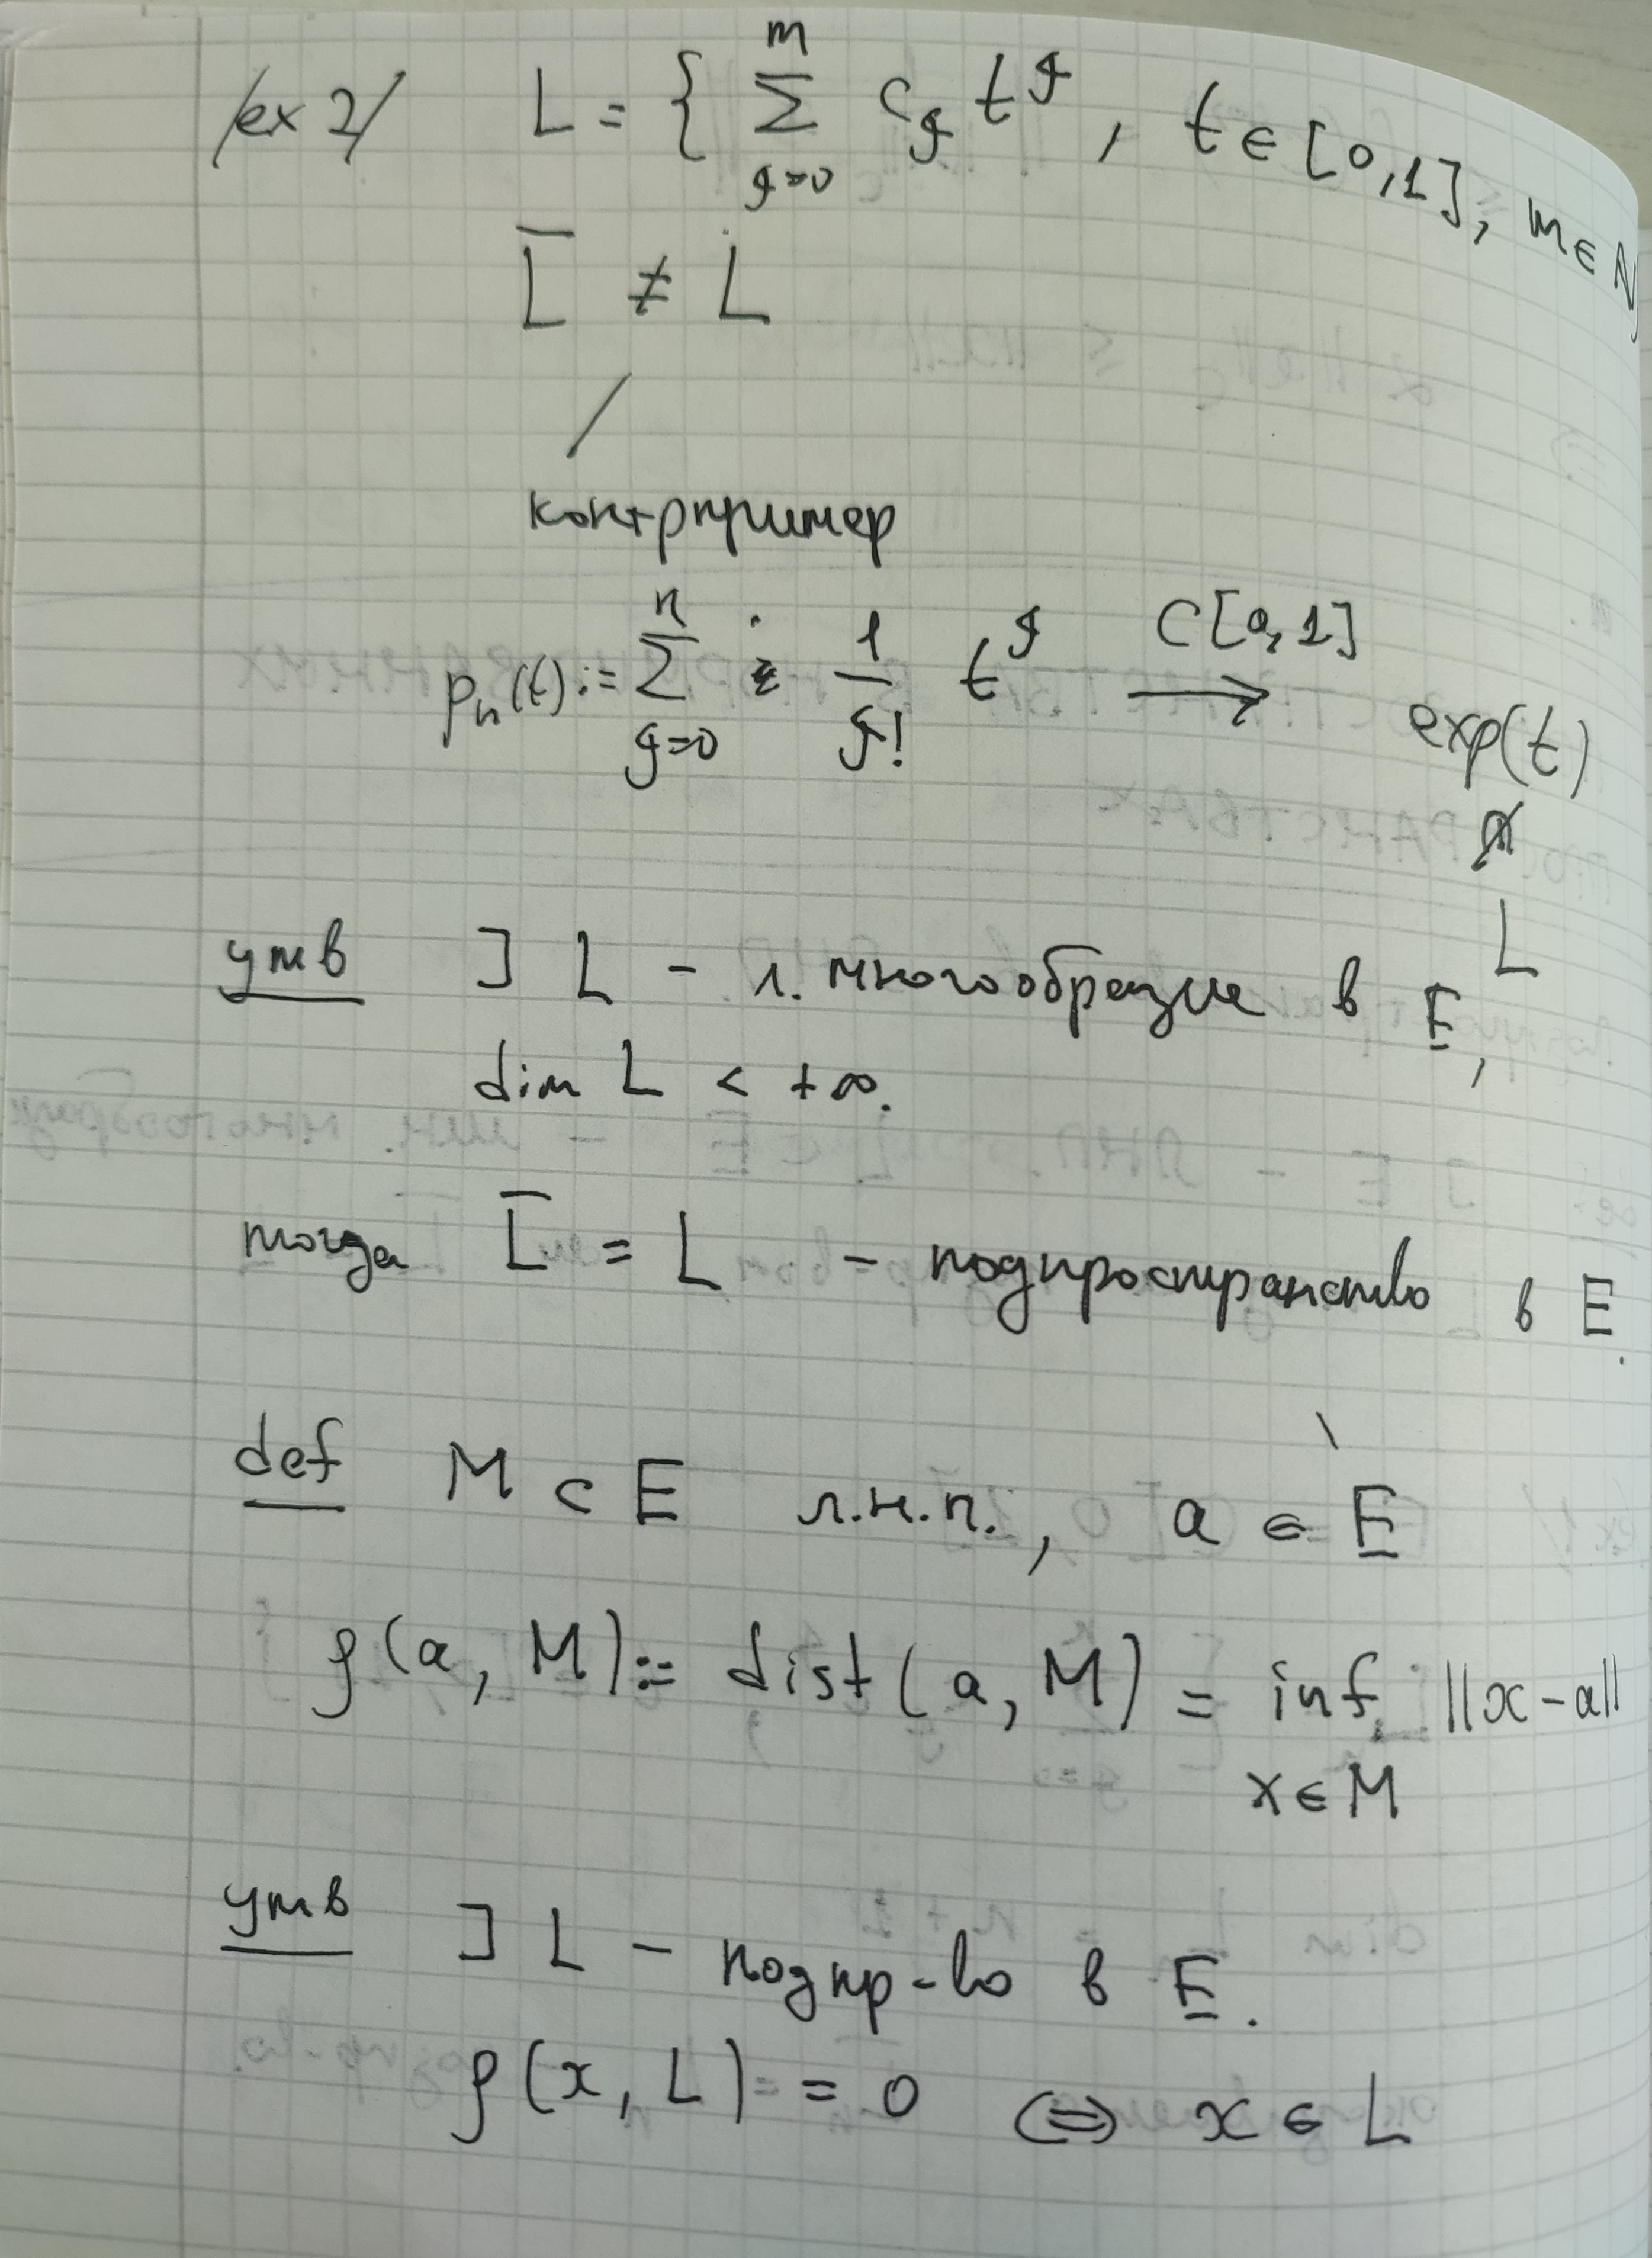 /ex 2/ L = { m Σ g=0 c_g t^g , t ∈ [0,1], m ∈ N
L̅ ≠ L
контрпример
p_n(t) := n Σ g=0 1/g! t^g → C[0,1] exp(t)
∉
L
утв ] L - л. многообразие в E,
dim L < +∞.
тогда L̅ = L - подпространство в E.
def M ⊂ E л.н.п., a ∈ E
ρ(a, M) := dist(a, M) = inf ||x-a||
x ∈ M
утв ] L - подпр-во в E.
ρ(x, L) = 0 ⇔ x ∈ L